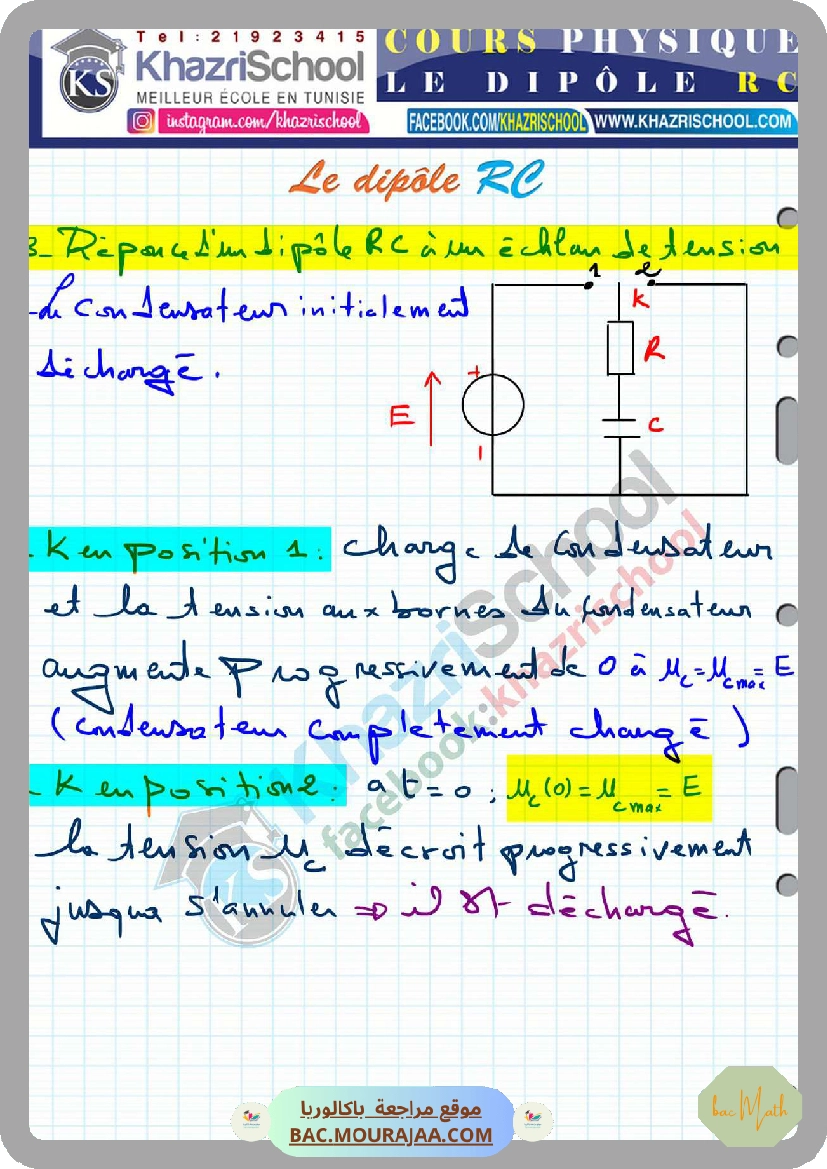 Tel: 21923415
KS
KhazriSchool
MEILLEUR ÉCOLE EN TUNISIE
instagram.com/khazrischool
COURS PHYSIQUE
LE DIPÔLE RC
FACEBOOK.COM/KHAZRISCHOOL
WWW.KHAZRISCHOOL.COM
Le dipôle RC
3_ Réponce d'un dipôle RC à un échlon de tension
- le condensateur initialement
déchargé.
1 2
K
R
+
E
C
-
- K en position 1 : charge de condensateur
et la tension aux bornes du condensateur
augmente progressivement de 0 à Uc = Ucmax = E
(condensateur completement chargé)
- K en position 2 : a t = 0 ; Uc(0) = Ucmax = E
la tension Uc décroit progressivement
jusqua s'annuler ⇒ il est déchargé.
KhazriSchool
facebook:khazrischool
موقع مراجعة باكالوريا
BAC.MOURAJAA.COM
bac Math